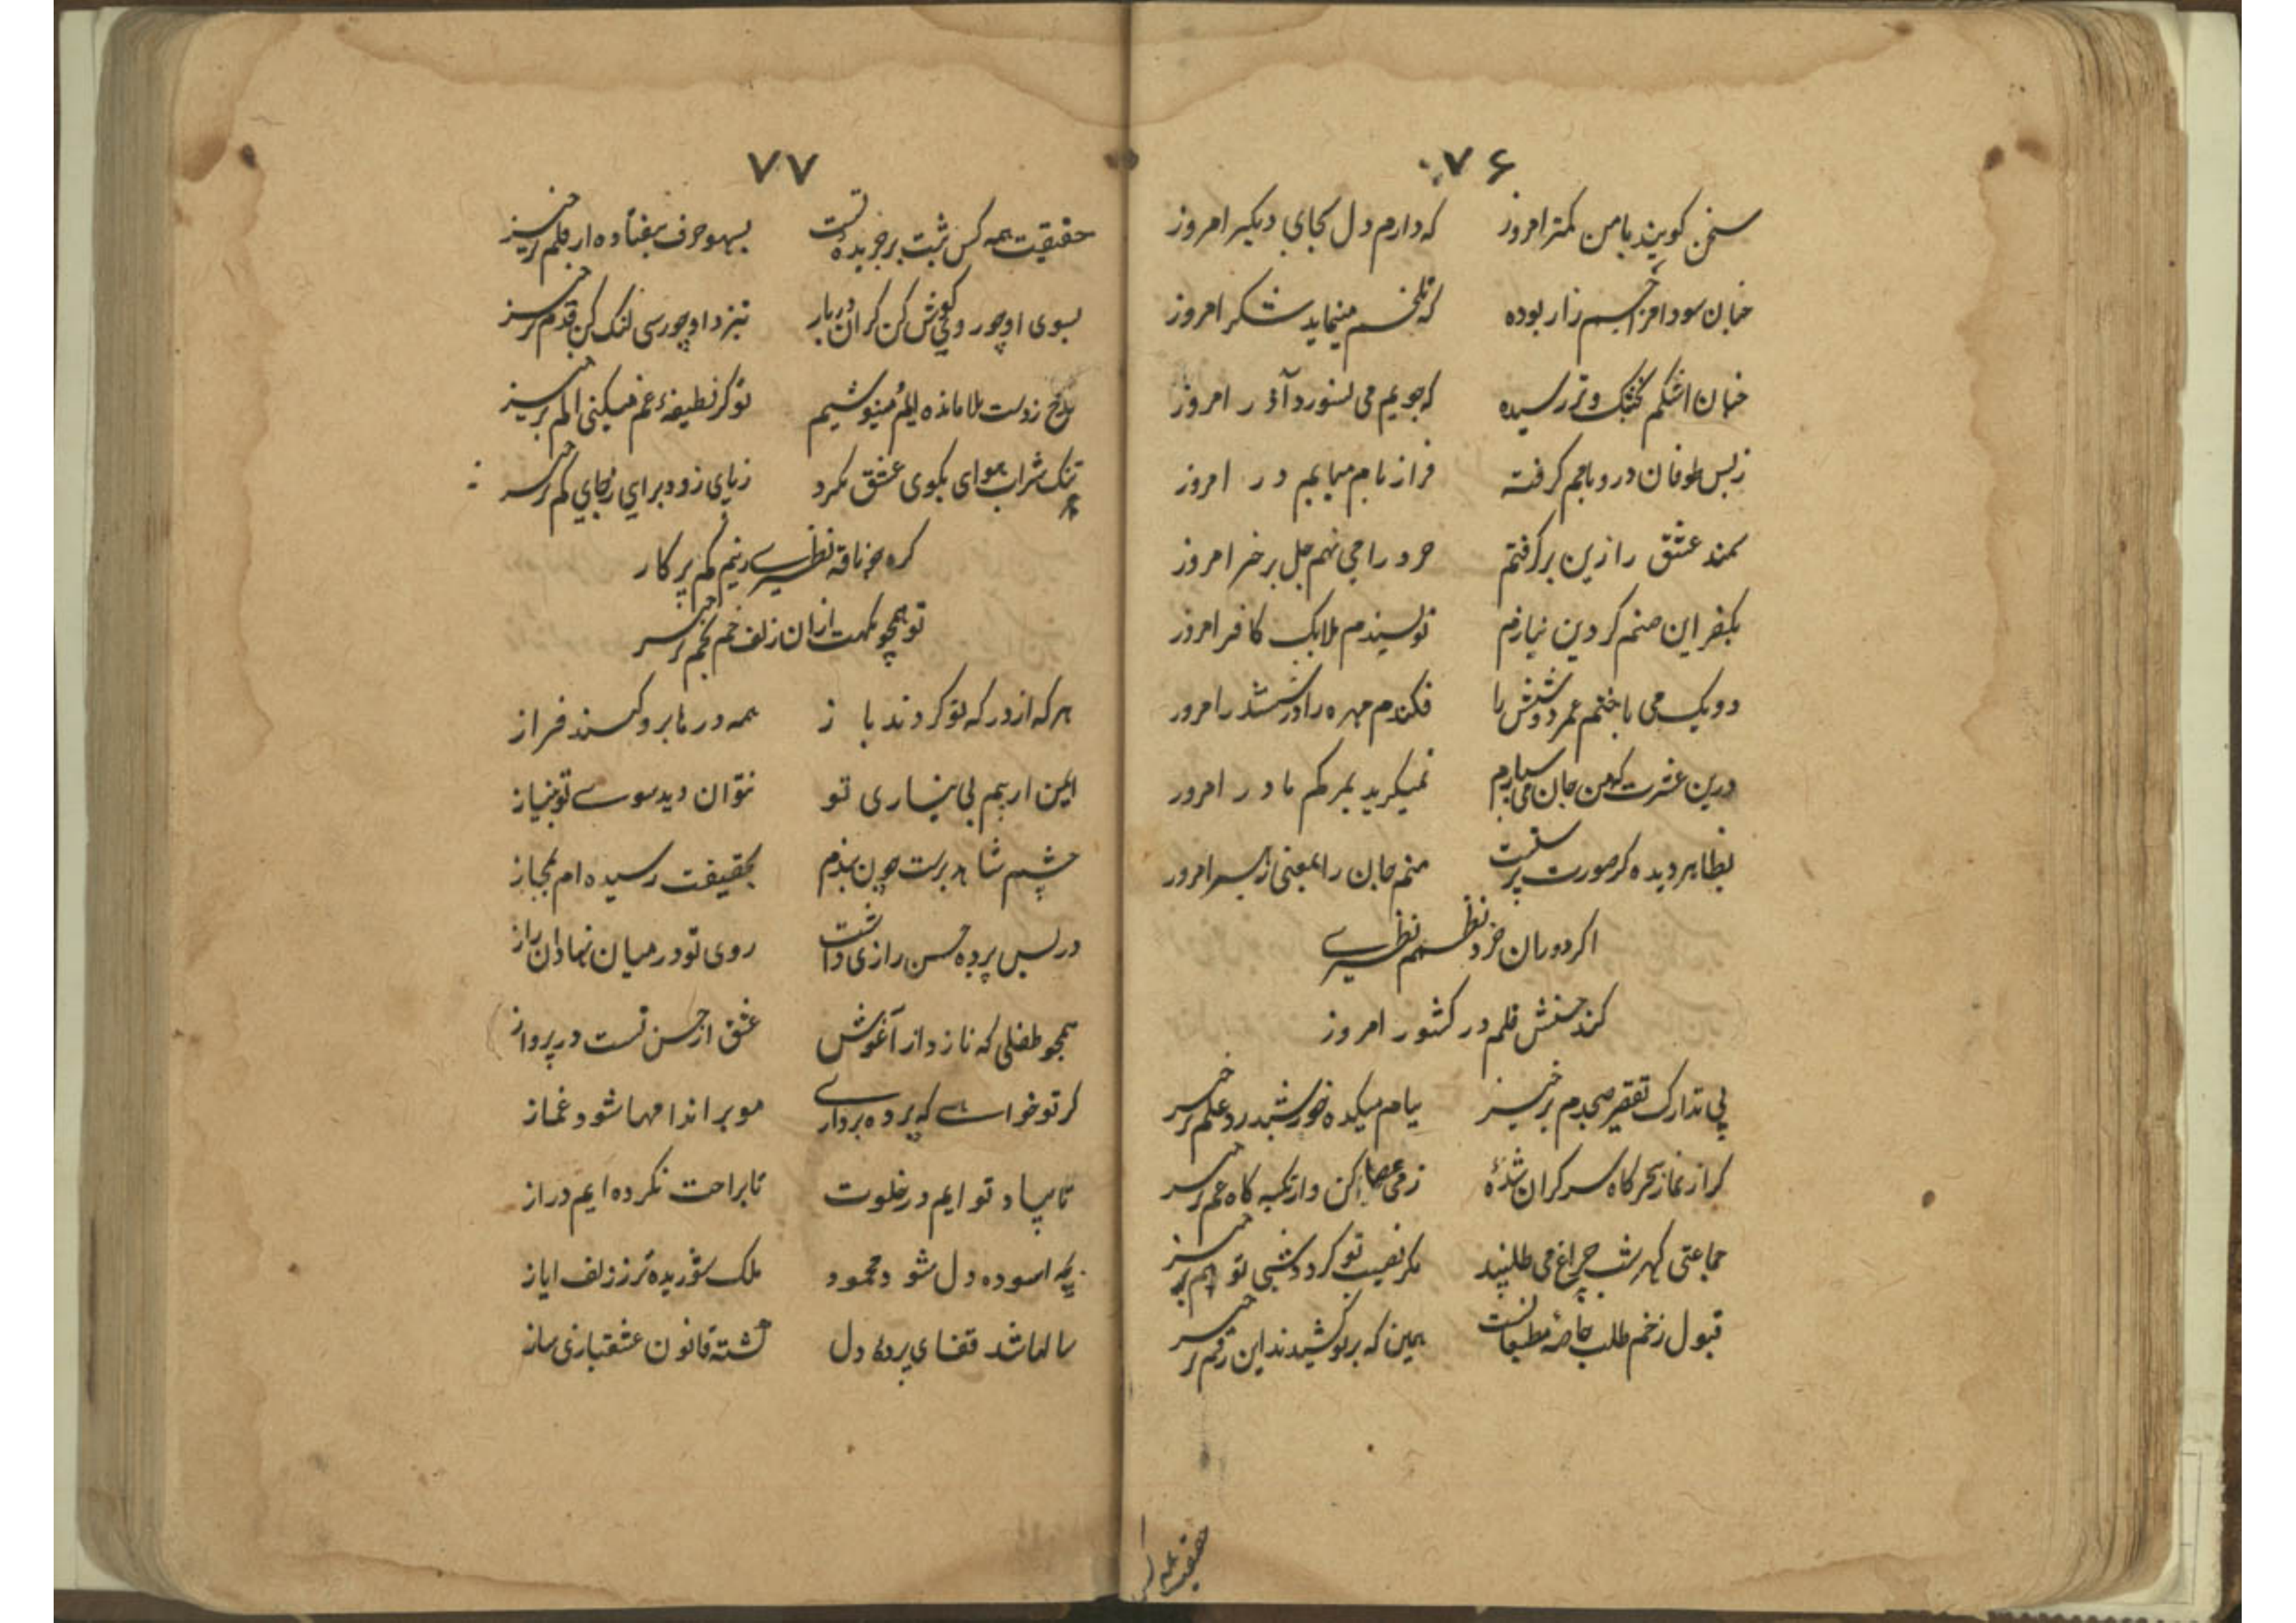 ۷۶
سخن کویند با من کمتر امروز که دارم دل بجای دیکر امروز
چنان سودا مزاجم زار بوده که تلخم مینماید شکر امروز
چنان اشکم بخشک و تر رسیده که جویم می نسوزد آذر امروز
ز بس طوفان در و بامم کرفته فراز بام میایم در امروز
کمند عشق را زین برکرفتم خرد را می نهم جل بر خر امروز
بکفر این صنم کر دین نیازم نویسندم ملایک کافر امروز
دو یک می باختم عمر دو شش را فکندم مهره را در ششدر امروز
درین عشرت که من جان می سپارم نمیکرید بمرکم مادر امروز
بظاهر دیده کر صورت پرستست منم جان را بمعنی رهبر امروز
اکر دوران خرد نظم نظیری
کند جنبش قلم در کشور امروز
پی تدارک تقصیر صبحدم برخیز ببام میکده خورشید زد علم برخیز
کر از نماز سحرکاه سرکران شدهٔ ز می عصا کن و از تکیه کاه غم برخیز
جماعتی که بشب چراغ می طلبند مکر نصیب تو کردد شبی تو هم برخیز
قبول زخم طلب خاصهٔ مطیعانست همین که بر تو کشیدند این رقم برخیز
حقیقت همه کس
۷۷
حقیقت همه کس ثبت بر جریده تست بسهو حرف بیفتاده از قلم برخیز
بسوی او چو روی کوش کن کران دربار بنزد او چو رسی لنک کن قدم برخیز
تلخ ز دست بلا مانده ایم مینوشیم تو کر نطیفهٔ غم میکنی الم برخیز
تنک شراب هوای بکوی عشق مکرد ز پای زود برای ز جای کم برخیز
کره چو نافه نظیری زنیم کم بر کار
تو همچو نکهت ازان زلف خم بخم برخیز
هر که از درکه تو کردند باز همه درها برو کنند فراز
ایمن اریم بی نیازی تو نتوان دید سوی تو بنیاز
چشم شاهد پرست چون بندم بحقیقت رسیده ام بمجاز
در پس پرده حسن رازی داشت روی تو در میان نهاد آن راز
همچو طفلی که نازد از آغوش عشق از حسن تست در پرواز
کر تو خواهی که پرده برداری مو بر اندامها شود غماز
تا بیاد تو ایم در خلوت پا براحت نکرده ایم دراز
به اسوده دل شود محمود ملک شوریده تر ز زلف ایاز
سالها شد قفای پردهٔ دل کشته قانون عشقبازی ساز